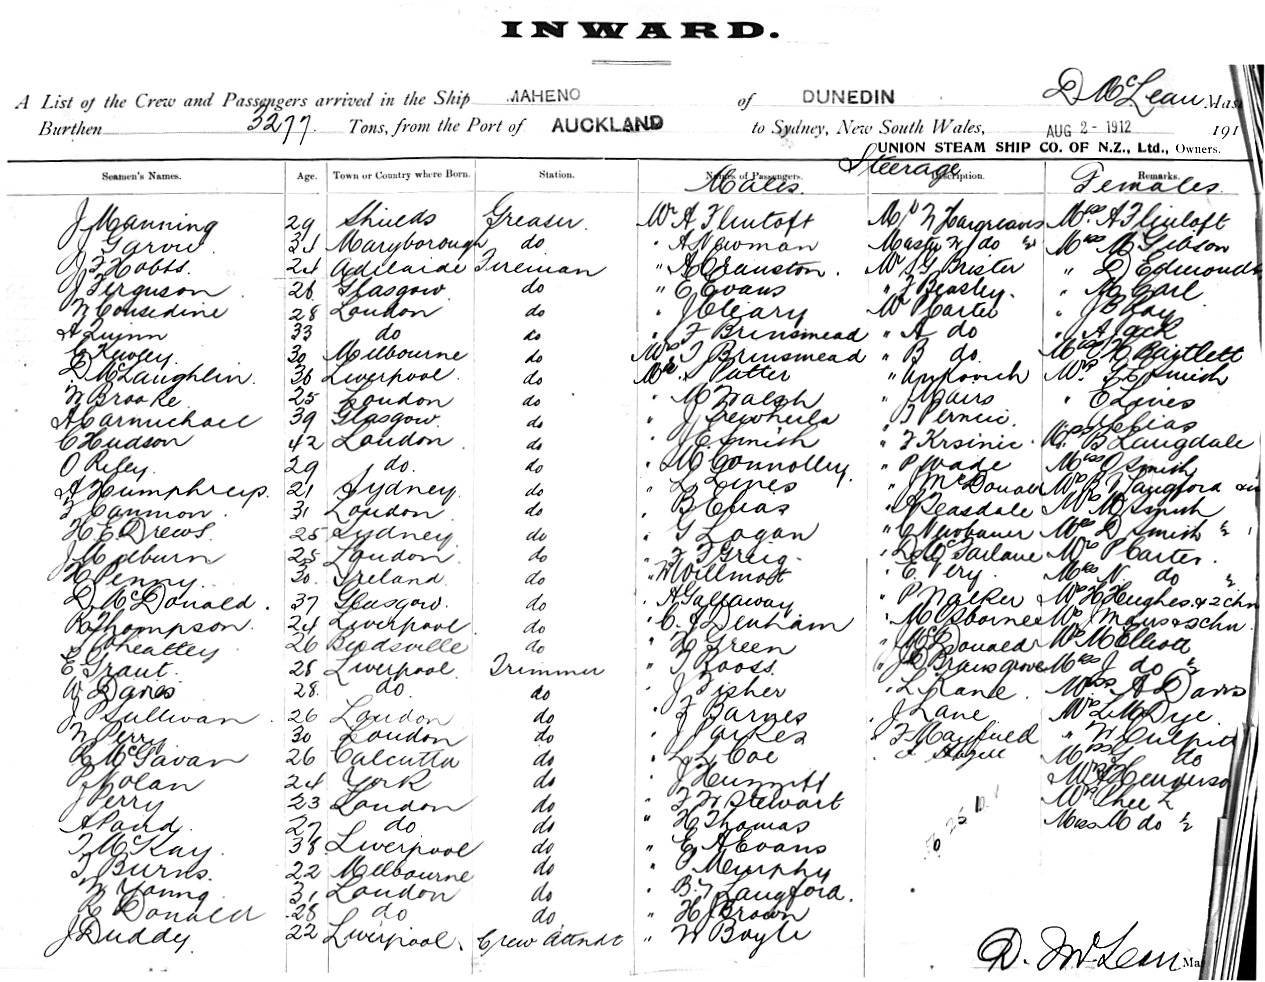 INWARD.
A List of the Crew and Passengers arrived in the Ship MAHENO of DUNEDIN D McLean, Mas
Burthen 3277. Tons, from the Port of AUCKLAND to Sydney, New South Wales, AUG 2 - 1912 191
UNION STEAM SHIP CO. OF N.Z., Ltd., Owners.
Seamen's Names. Age. Town or Country where Born. Station. Names of Passengers. Description. Remarks.
Males. Steerage Females.
J Manning 29 Shields Greaser Mr A Flintoft Mr W Hargreaves Mrs A Flintoft
J Garvie 31 Maryborough do " A Newman Master W do ½ Miss M Gibson
J T Hobbs 24 Adelaide Fireman " A Cranston. Mr S G Brister " D Edmonds
J Ferguson 26 Glasgow do " E Evans " F Beasley. " M Carl
W Considine 28 London do " J Cleary Mr P Carter " J E Kay
A Quinn 33 do do " F Brinsmead " A do " A Jack
Kewley 30 Melbourne do Mrs F Brinsmead " B do Miss E W Bartlett
D McLaughlin. 36 Liverpool. do Mr S Patter " Mrs G Smith
W Brooke 25 London do " M Walsh " Mairs " E Lines
A Carmichael 39 Glasgow. do " J " T " Elias
C Hudson 42 London do " J E Smith " F Krsinic Miss B Langdale
O Riley. 29 do. do " M Connolley. " P Wade Miss O Smith
A Humphreys. 21 Sydney. do " L Lines " J McDonald Mrs B T Langford
F Cannon. 31 London do " B Elias " Peasdale Mrs M Smith
H. E. Drews. 25 Sydney do " G Logan " C Newbauer Miss D Smith ½
J Medburn 25 London do " F F Greig. " D McFarlane Mrs P Carter.
H Penny. 30. Ireland. do " W Willmott " E. Very. Miss N do ½
D McDonald. 37 Glasgow. do " A Gallaway " P Walker Mrs H Hughes & 2 chn
R Thompson. 24 Liverpool do " C. J. Denham " M Osborne Mrs J Mairs & 3 chn.
S Wheatley 26 Birdsville do " H Green " McDonald Mrs M Elliott
E Grant. 28 Liverpool Trimmer " T Rooss. " J C Bransgrove Miss J do ½
W Davis 28. do. do " J Fisher " L Kane. Miss A Davis
J Sullivan 26 London do " F Barnes " J Lane Mrs L M Dye.
W Perry 30 London do " J Parkes " F Mayfield " W Culpitt
R McGavan 26 Calcutta do " L Coe " F Miss G do
P Nolan 24 York do " J Mrs Henderson
J Perry 23 London do " F W Stewart Mrs Chee L
A Pand. 27 do do " H Thomas Miss M do ½
T McKay. 38 Liverpool do " E A Evans
T Burns. 22 Melbourne do " P Murphy
W Young 31 London do " B. T Langford.
R E Donald 28 do do " H Brown
J Duddy 22 Liverpool. Crew Attndt " W Boyle
D. McLean Mas